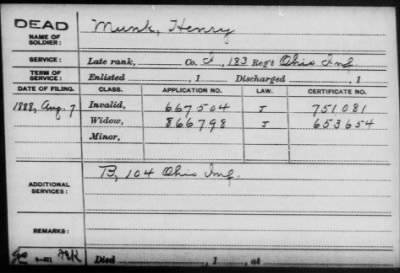 DEAD
NAME OF SOLDIER: Munk, Henry
SERVICE: Late rank, Co. I, 183 Reg't Ohio Inf.
TERM OF SERVICE: Enlisted , 1 Discharged , 1
DATE OF FILING. CLASS. APPLICATION NO. LAW. CERTIFICATE NO.
1888, Aug. 7 Invalid, 667504 J 751081
Widow, 866798 J 653654
Minor,
ADDITIONAL SERVICES: B, 104 Ohio Inf.
REMARKS:
Died , 1 , at